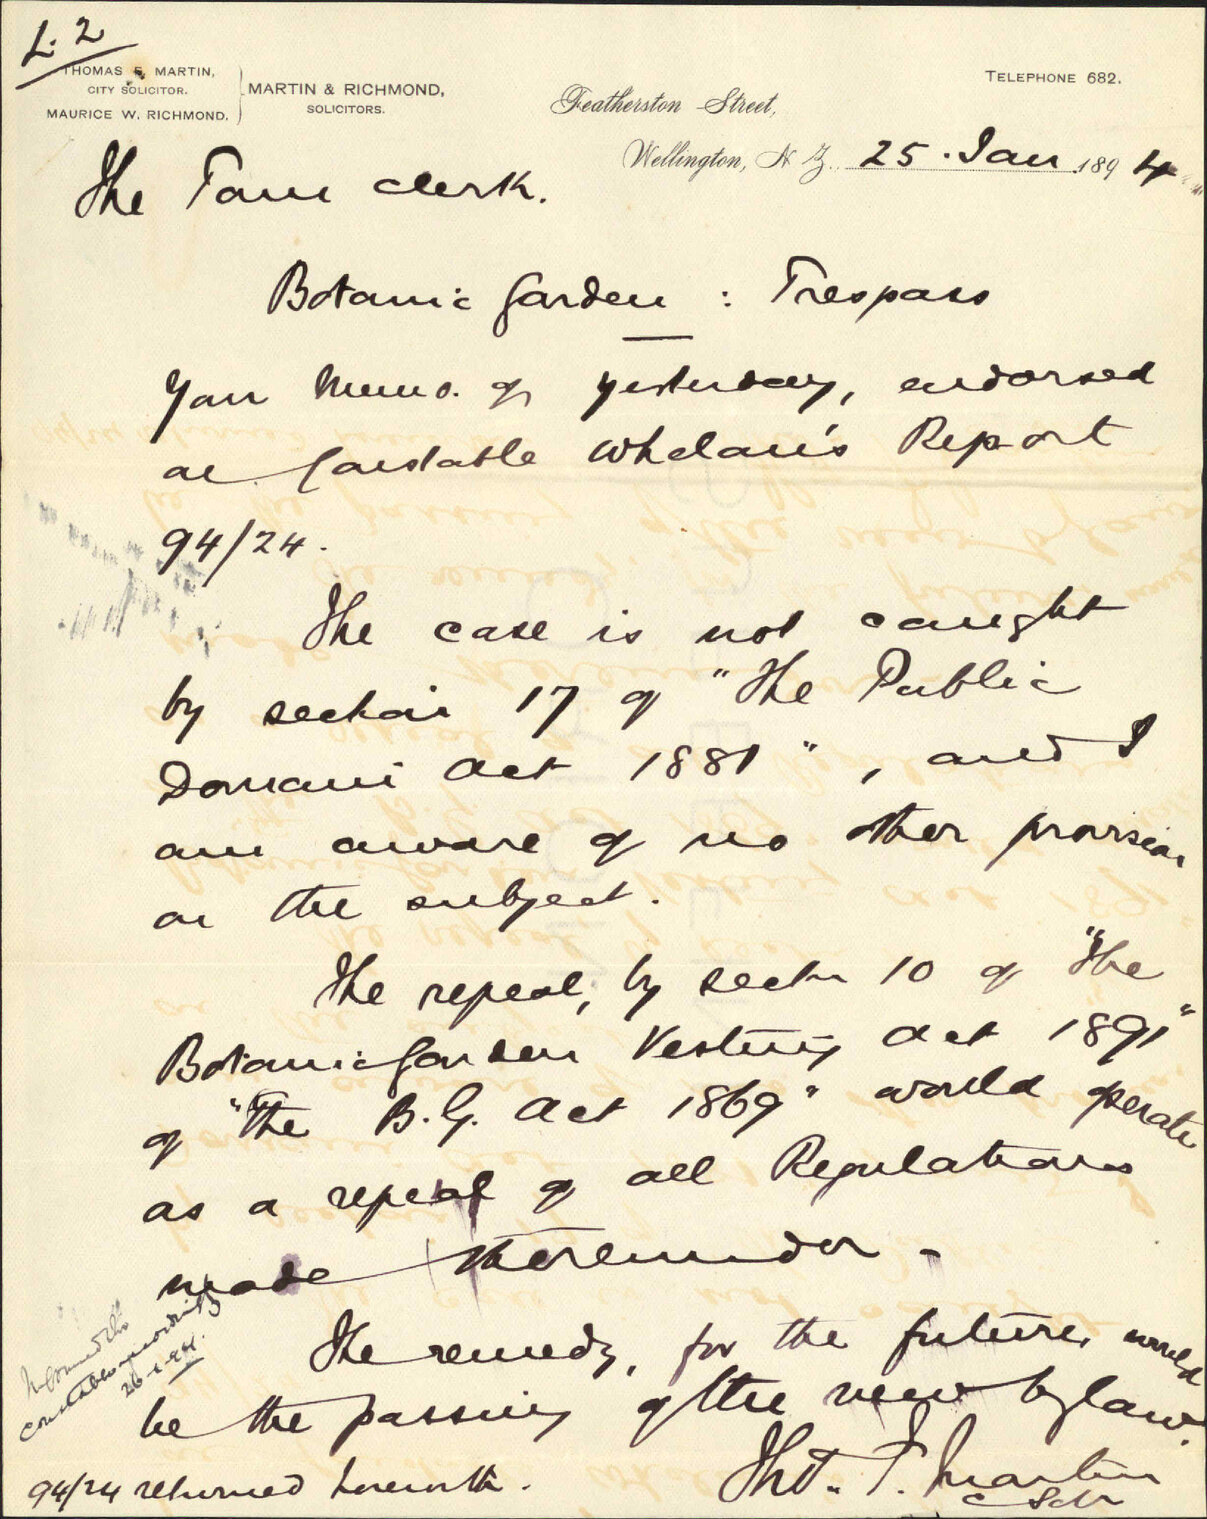 L. 2
THOMAS F. MARTIN,
CITY SOLICITOR.
MAURICE W. RICHMOND.
MARTIN & RICHMOND,
SOLICITORS.
TELEPHONE 682.
Featherston Street,
Wellington, N Z. 25 Jan 1894
The Town Clerk.
Botanic Garden : Trespass
Your Memo. of yesterday, endorsed
on Constable Whelan's Report
94/24.
The case is not caught
by section 17 of "The Public
Domain Act 1881", and I
am aware of no other provision
on the subject.
The repeal, by sectn 10 of "The
Botanic Garden Vesting Act 1891"
of "The B.G. Act 1869" would operate
as a repeal of all Regulations
made thereunder.
The remedy, for the future, would
be the passing of the new bylaw.
Thos. F. Martin
C Solr
Informed the
constable accordingly
26-1-94.
94/24 returned herewith.